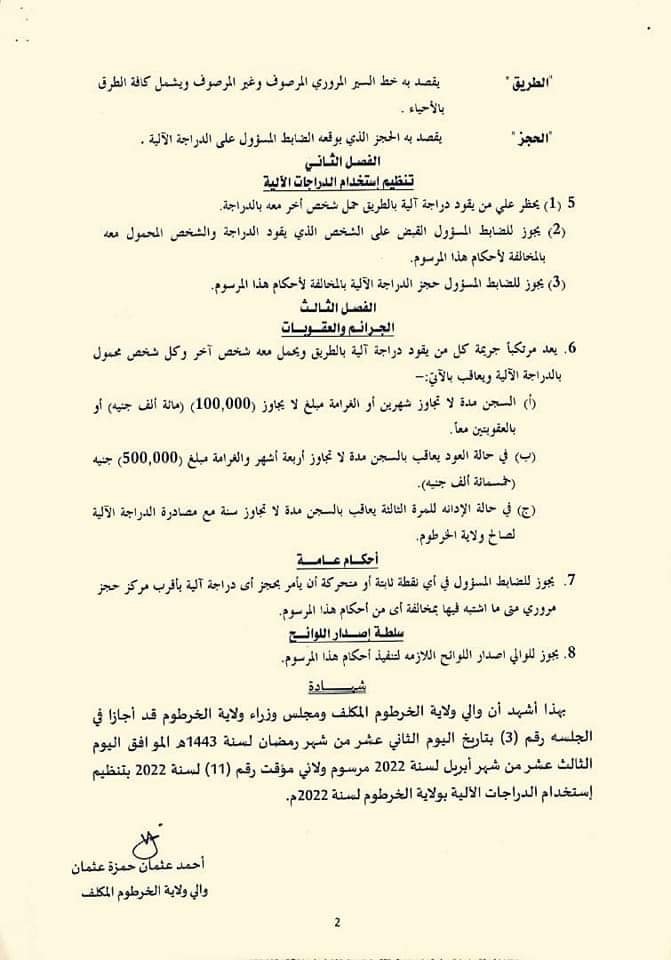 "الطريق" يقصد به خط السير المروري المرصوف وغير المرصوف ويشمل كافة الطرق
بالأحياء .
"الحجز" يقصد به الحجز الذي يوقعه الضابط المسؤول على الدراجة الآلية .
الفصل الثاني
تنظيم إستخدام الدراجات الآلية
5 (1) يحظر علي من يقود دراجة آلية بالطريق حمل شخص أخر معه بالدراجة.
(2) يجوز للضابط المسؤول القبض على الشخص الذي يقود الدراجة والشخص المحمول معه
بالمخالفة لأحكام هذا المرسوم.
(3) يجوز للضابط المسؤول حجز الدراجة الآلية بالمخالفة لأحكام هذا المرسوم.
الفصل الثالث
الجرائم والعقوبات
6. يعد مرتكباً جريمة كل من يقود دراجة آلية بالطريق ويحمل معه شخص آخر وكل شخص محمول
بالدراجة الآلية ويعاقب بالآتي:–
(أ) السجن مدة لا تجاوز شهرين أو الغرامة مبلغ لا يجاوز (100,000) (مائة ألف جنيه) أو
بالعقوبتين معاً.
(ب) في حالة العود يعاقب بالسجن مدة لا تجاوز أربعة أشهر والغرامة مبلغ (500,000) جنيه
(خمسمائة ألف جنيه).
(ج) في حالة الإدانه للمرة الثالثة يعاقب بالسجن مدة لا تجاوز سنة مع مصادرة الدراجة الآلية
لصالح ولاية الخرطوم.
أحكام عامة
7. يجوز للضابط المسؤول في أي نقطة ثابتة أو متحركة أن يأمر بحجز أى دراجة آلية بأقرب مركز حجز
مروري متى ما اشتبه فيها بمخالفة أى من أحكام هذا المرسوم.
سلطة إصدار اللوائح
8. يجوز للوالي اصدار اللوائح اللازمه لتنفيذ أحكام هذا المرسوم.
شهادة
بهذا أشهد أن والي ولاية الخرطوم المكلف ومجلس وزراء ولاية الخرطوم قد أجازا في
الجلسه رقم (3) بتاريخ اليوم الثاني عشر من شهر رمضان لسنة 1443هـ الموافق اليوم
الثالث عشر من شهر أبريل لسنة 2022 مرسوم ولائي مؤقت رقم (11) لسنة 2022 بتنظيم
إستخدام الدراجات الآلية بولاية الخرطوم لسنة 2022م.
أحمد عثمان حمزة عثمان
والي ولاية الخرطوم المكلف
2